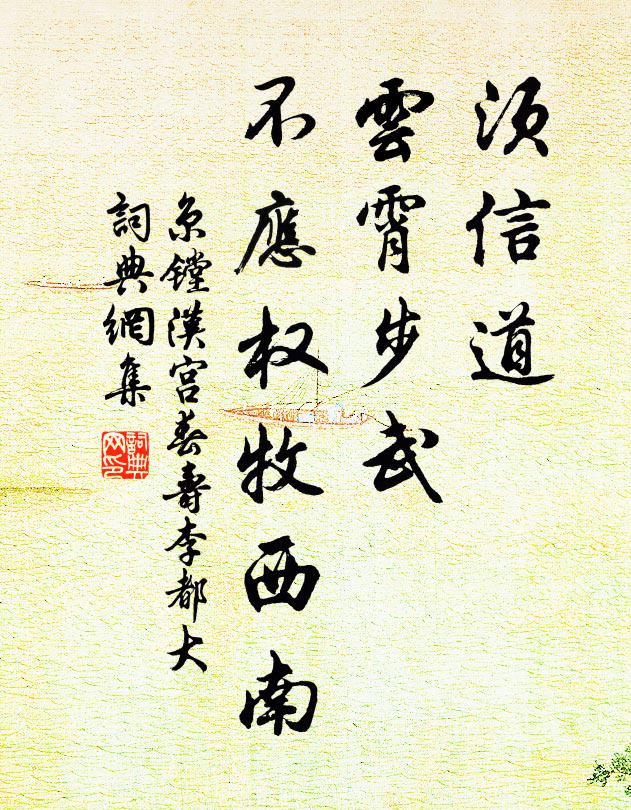 须信道
雲霄步武
不應权牧西南
京镗漢宫春壽李都大
詞典網集
詞典
网印